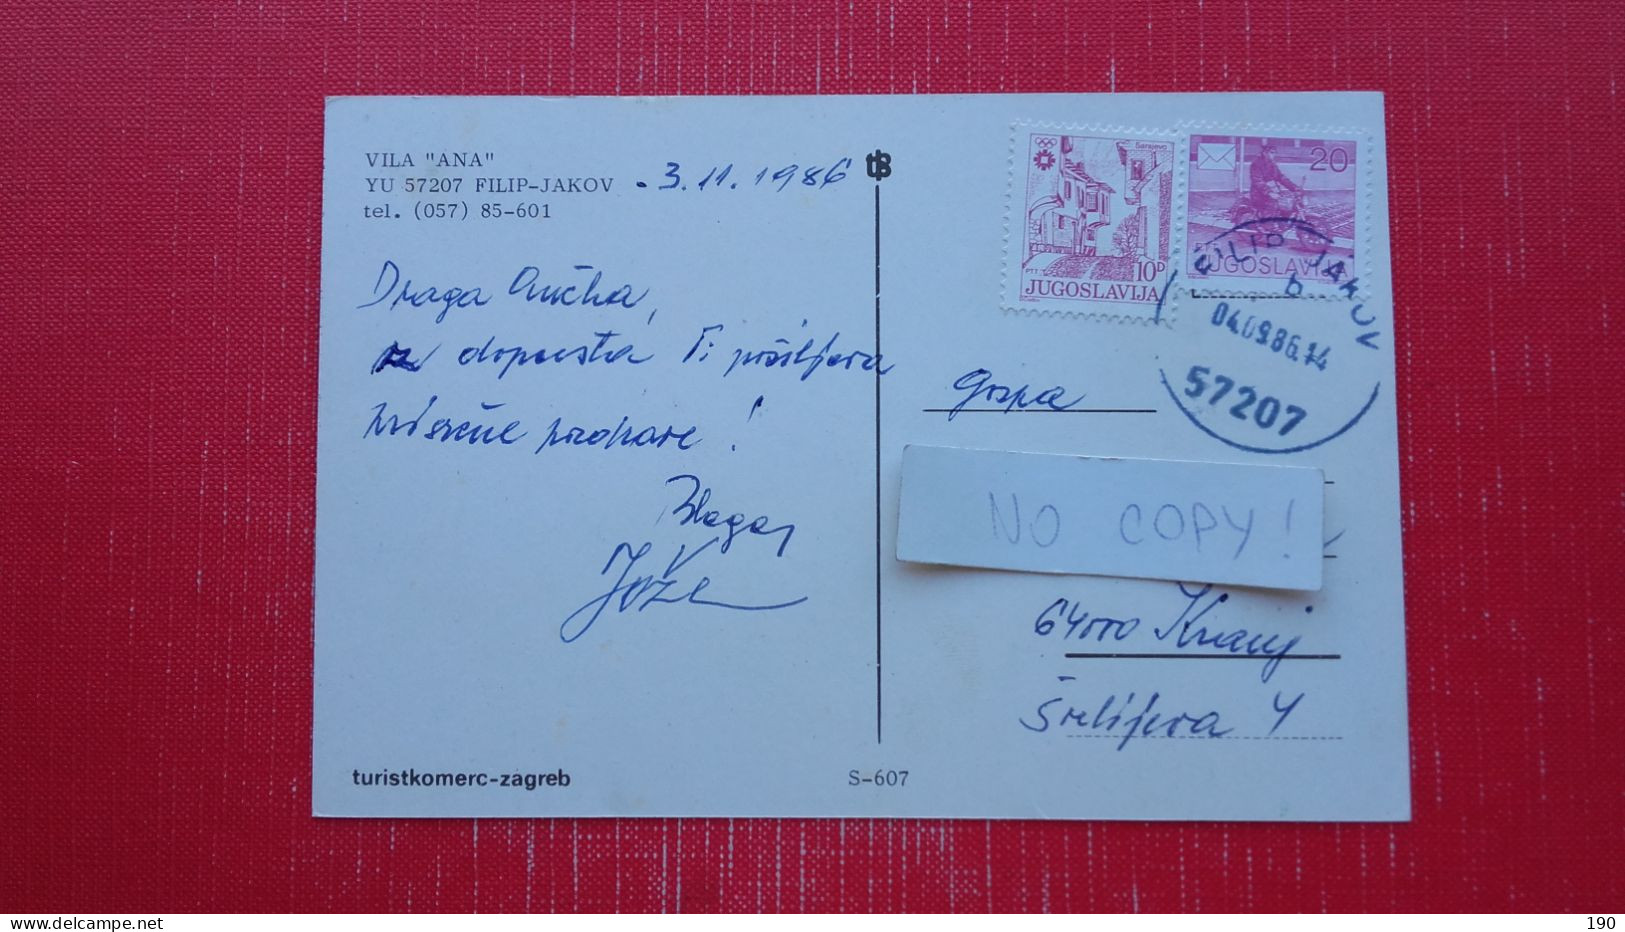 VILA "ANA"
YU 57207 FILIP-JAKOV
tel. (057) 85-601
3.11.1986
Draga
dopusta Ti pošiljava
prisrčne pozdrave!
Blaga,
Jože
turistkomerc-zagreb
S-607
Sarajevo
10D
PTT
JUGOSLAVIJA
20
JUGOSLAVIJA
FILIP JAKOV
b
04.09.86.14
57207
Gospa
NO COPY!
64000 Kranj
4
190